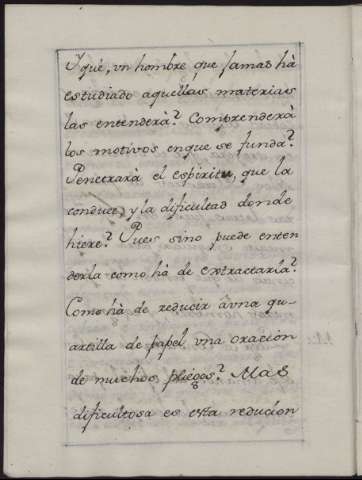 Y què, vn hombre que Jamas hà
estudiado aquellas materias
las entenderà? Comprenderà
los motivos enque se funda?
Penetrarà el espiritu, que la
conduce, y la dificultad donde
hiere? Pues sino puede enten
derla como hà de extractarla?
Como hà de reducir àvna qu-
artilla de papel vna oración
de muchos pliegos? Mas
dificultosa es esta reducion